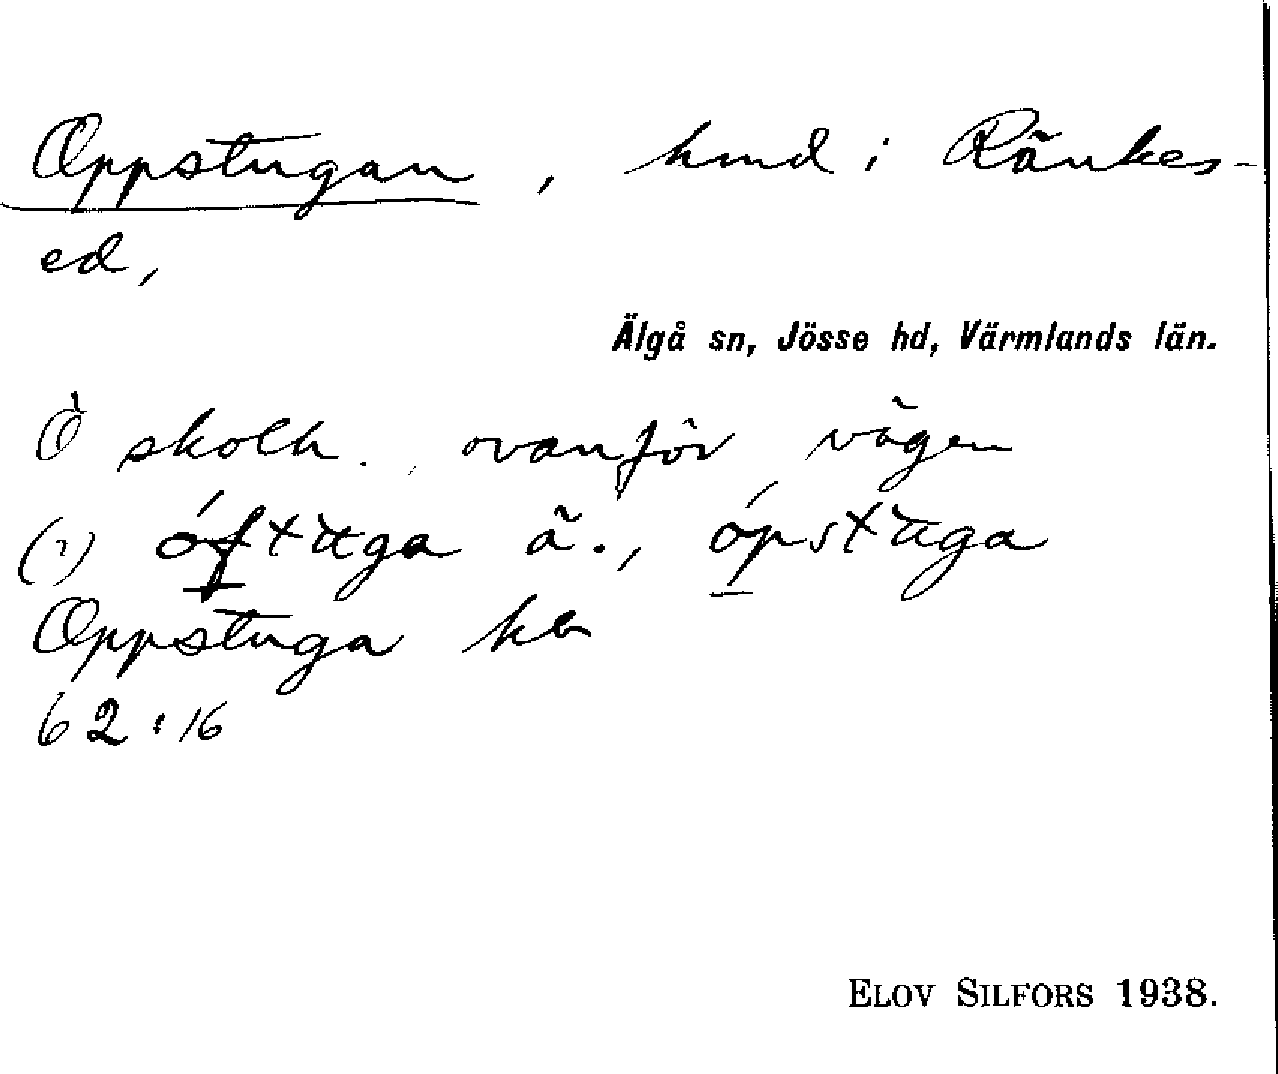 Oppstugan, hmd i Ränkes-
ed,
Älgå sn, Jösse hd, Värmlands län.
Ö skolh. ovanför vägen
(1) óftùga ä., ópstùga
Oppstuga kb
62:16
ELOV SILFORS 1938.